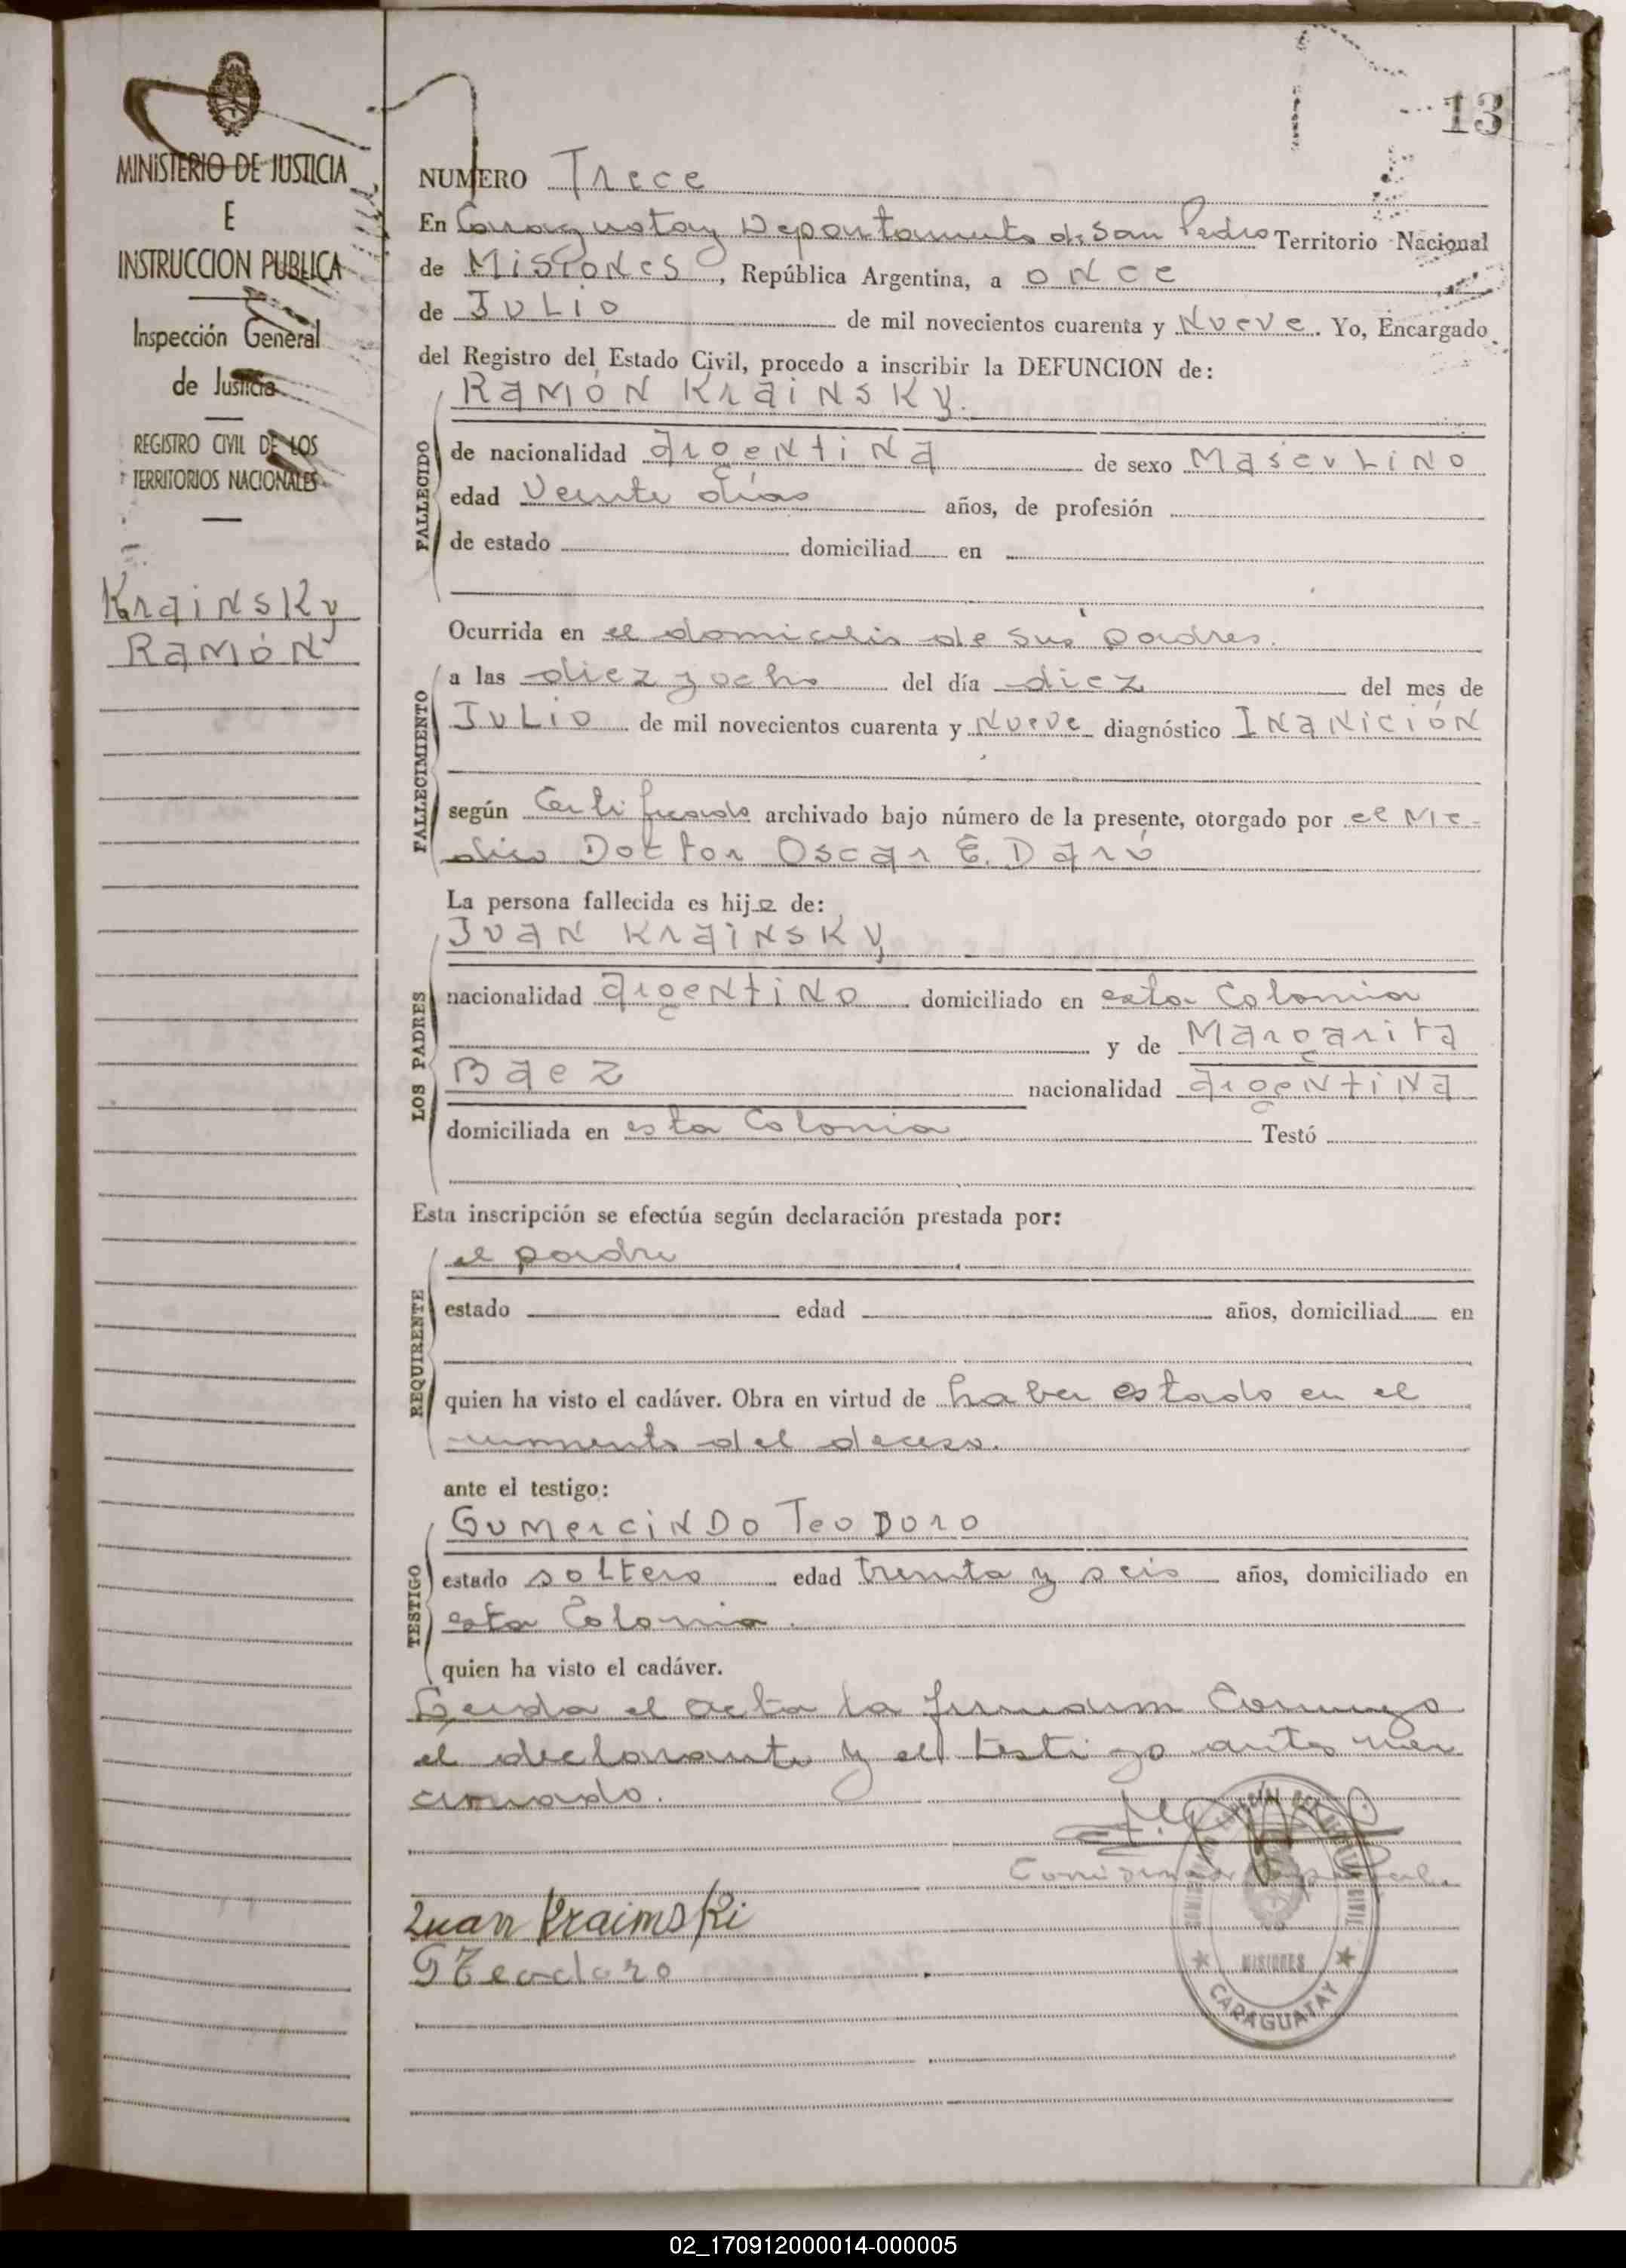 13
MINISTERIO DE JUSTICIA
E
INSTRUCCION PUBLICA
Inspección General
de Justicia
REGISTRO CIVIL DE LOS
TERRITORIOS NACIONALES
Krainsky
Ramón
NUMERO Trece
En Caraguatay Departamento de San Pedro Territorio Nacional
de Misiones, República Argentina, a once
de Julio de mil novecientos cuarenta y Nueve. Yo, Encargado
del Registro del Estado Civil, procedo a inscribir la DEFUNCION de:
Ramón Krainsky.
FALLECIDO
de nacionalidad argentina de sexo Masculino
edad Veinte días años, de profesión
de estado domiciliad en
Ocurrida en el domicilio de sus padres.
FALLECIMIENTO
a las diez y ocho del día diez del mes de
Julio de mil novecientos cuarenta y Nueve diagnóstico Inanición
según Certificado archivado bajo número de la presente, otorgado por el Me-
dico Doctor Oscar E. Darú
La persona fallecida es hijo de:
Juan Krainsky
LOS PADRES
nacionalidad argentino domiciliado en esta Colonia
y de Margarita
Baez nacionalidad argentina
domiciliada en esta Colonia Testó
Esta inscripción se efectúa según declaración prestada por:
el padre
REQUIRENTE
estado edad años, domiciliad en
quien ha visto el cadáver. Obra en virtud de haber estado en el
momento del deceso.
ante el testigo:
Gumercindo Teodoro
TESTIGO
estado soltero edad treinta y seis años, domiciliado en
esta Colonia.
quien ha visto el cadáver.
Leida el acta la firmaron Conmigo
el declarante y el testigo antes men
cionado.
Juan Kraimski
G Teodoro
MISIONES
CARAGUATAY
02_170912000014-000005